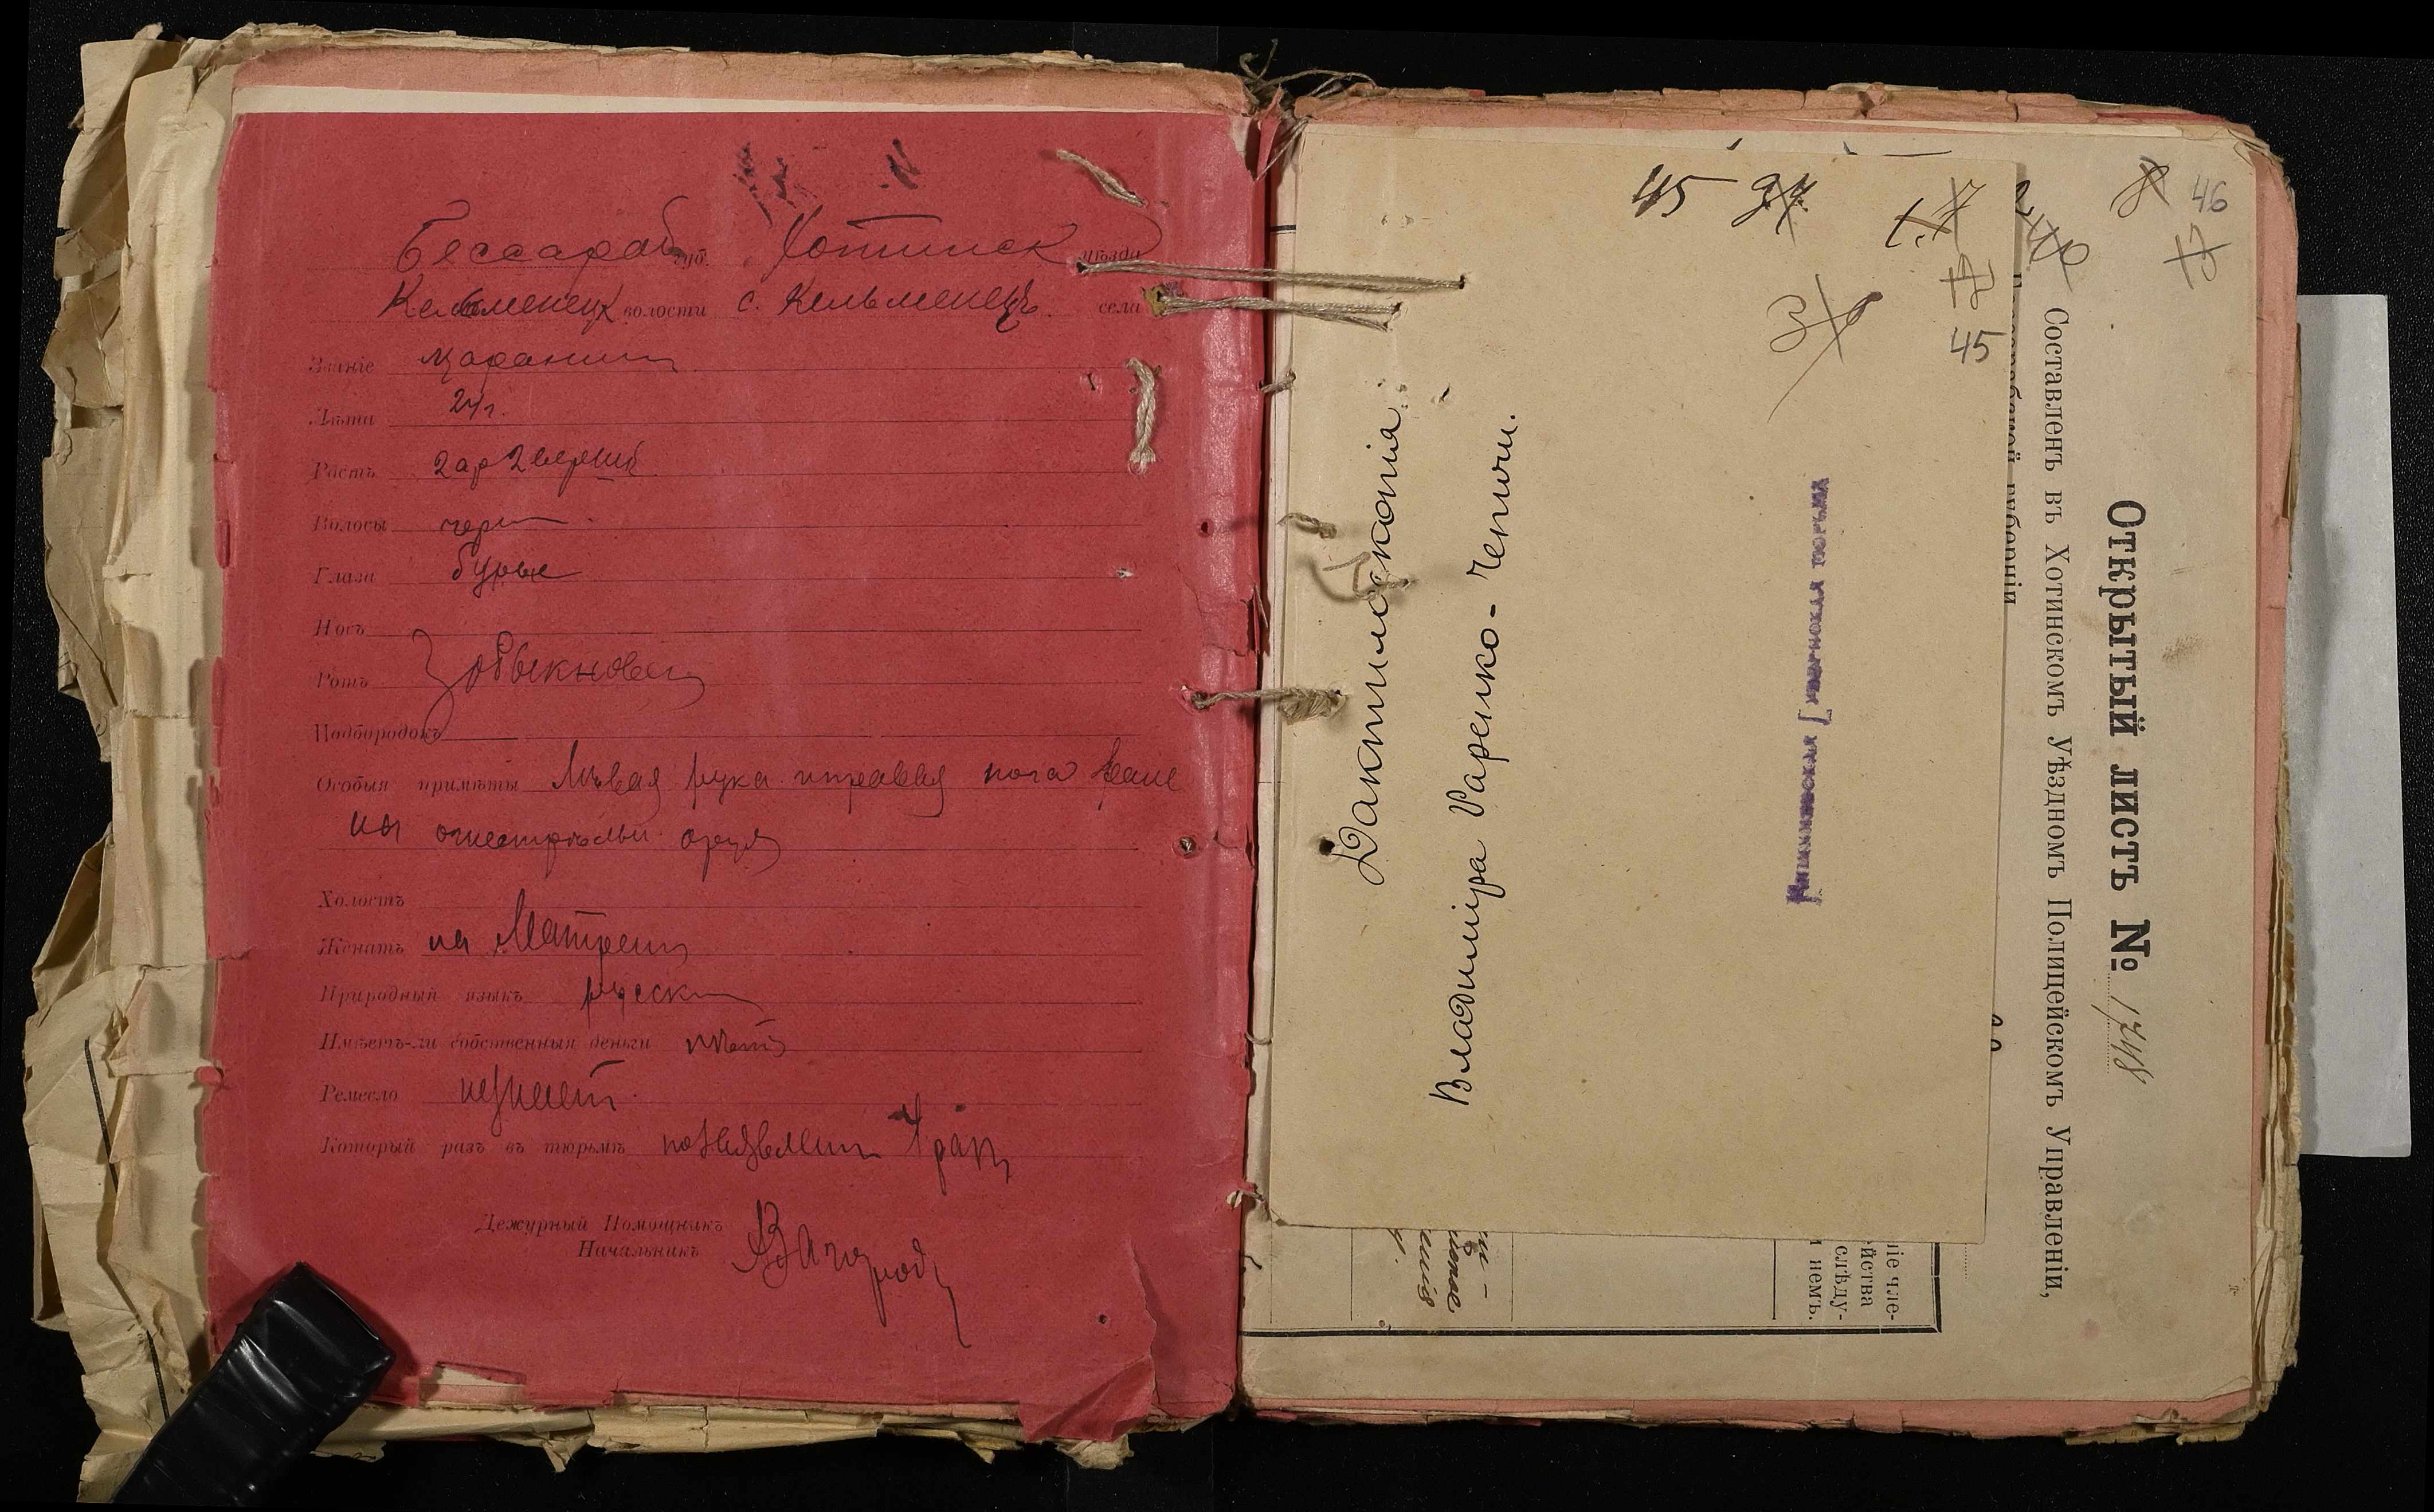 Бессараб губ. Хотинск уѣзда
Кельменецк волости с. Кельменецъ села
Званіе царанин
Лѣта 24 г.
Ростъ 2 ар 2 верш
Волосы черн
Глаза бурые
Носъ
Ротъ обыкновен
Подбородокъ
Особыя примѣты Лѣвая рука и правая нога
огнестрѣльн оруж
Холостъ
Женатъ на Матрен
Природный языкъ русск
Имѣетъ-ли собственныя деньги нѣтъ
Ремесло
Который разъ въ тюрьмѣ по заявлению раз
Дежурный Помощникъ
Начальника
45
17
45
Дактилоскопія
Владиміра Раренко-Чепичи.
Кишиневская губернская тюрьма
46
17
Открытый листъ № 1248
Составленъ въ Хотинскомъ Уѣздномъ Полицейскомъ Управленіи,
Бессарабской губерніи
ніе чле-
йства
слѣду-
и немъ.